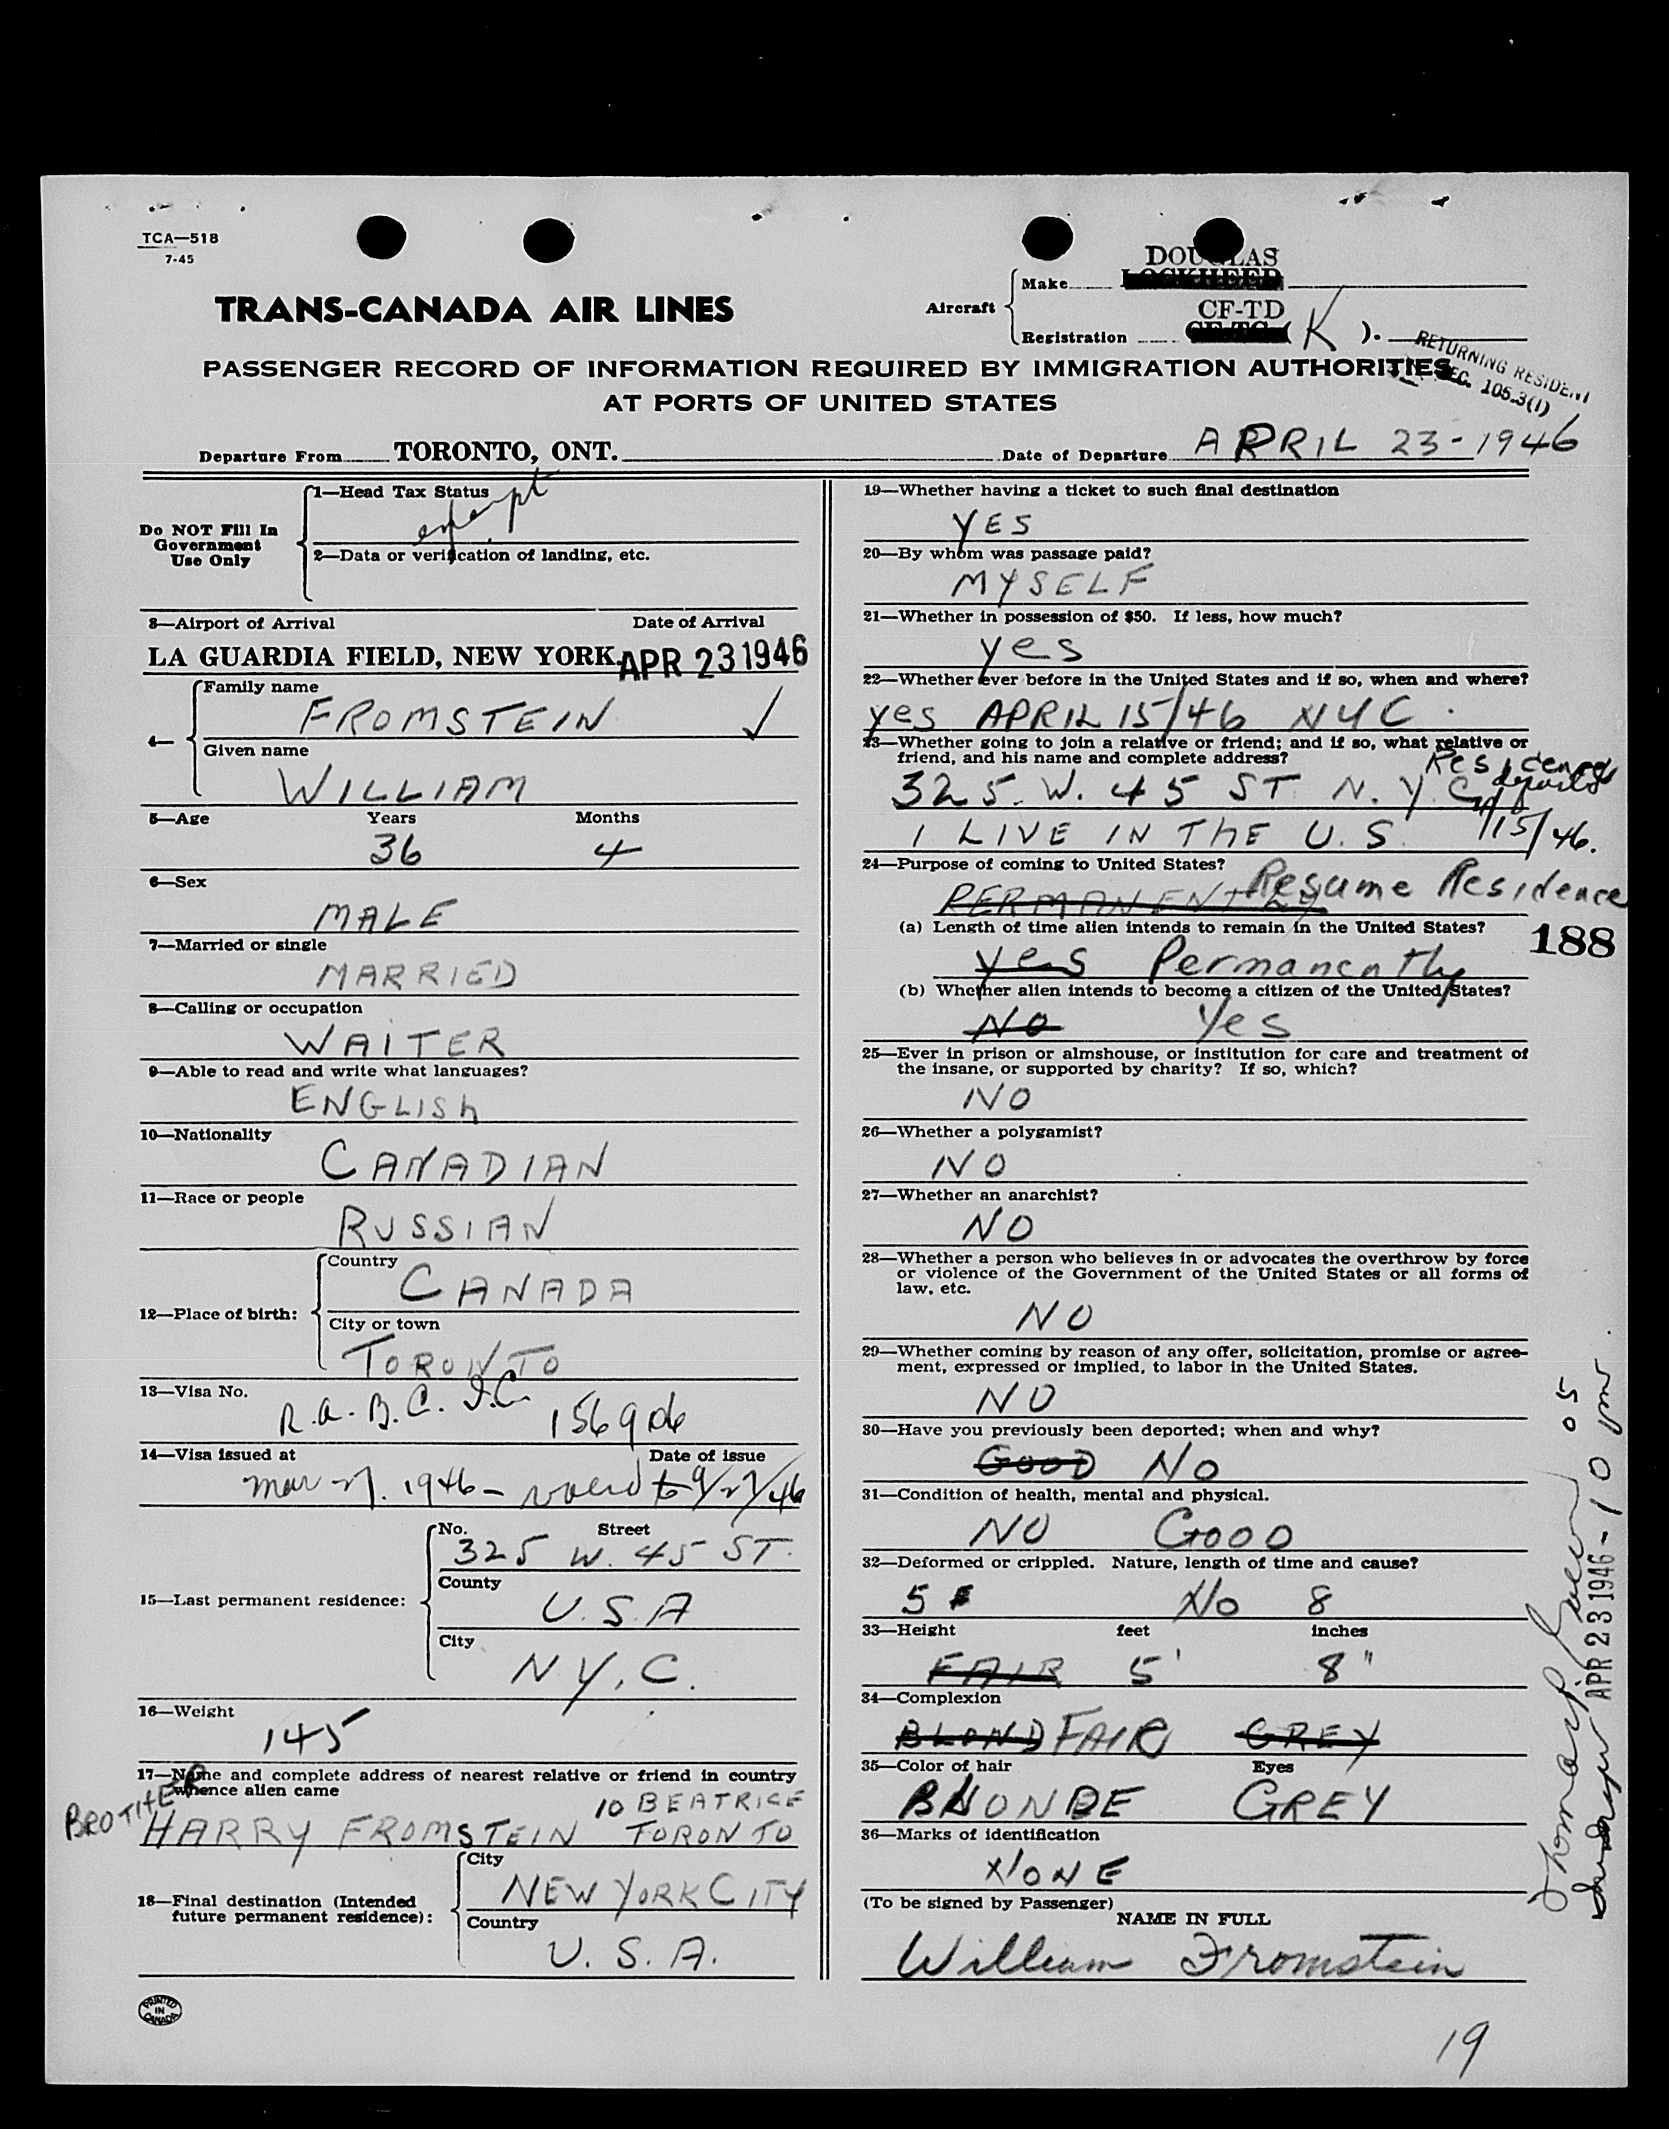 TCA—518
7-45
DOUGLAS
Make
LOCKHEED
TRANS-CANADA AIR LINES
Aircraft
CF-TD
Registration CF-TC ( K ).
RETURNING RESIDENT
SEC. 105.3(1)
PASSENGER RECORD OF INFORMATION REQUIRED BY IMMIGRATION AUTHORITIES
AT PORTS OF UNITED STATES
Departure From TORONTO, ONT.
Date of Departure APRIL 23-1946
Do NOT Fill In
Government
Use Only
1—Head Tax Status
exempt
2—Data or verification of landing, etc.
3—Airport of Arrival Date of Arrival
LA GUARDIA FIELD, NEW YORK. APR 23 1946
4—
Family name
FROMSTEIN ✓
Given name
WILLIAM
5—Age Years Months
36 4
6—Sex
MALE
7—Married or single
MARRIED
8—Calling or occupation
WAITER
9—Able to read and write what languages?
ENGLISh
10—Nationality
CANADIAN
11—Race or people
RUSSIAN
12—Place of birth:
Country
CANADA
City or town
TORONTO
13—Visa No.
R.A.B.C. I.C. 156906
14—Visa issued at Date of issue
Mar 27. 1946 - valid to 9/27/46
15—Last permanent residence:
No. Street
325 W. 45 ST.
County
U.S.A
City
NY.C.
16—Weight
145
17—Name and complete address of nearest relative or friend in country
whence alien came
BROTHER
10 BEATRICE
HARRY FROMSTEIN TORONTO
18—Final destination (Intended
future permanent residence):
City
NEW YORK CITY
Country
U.S.A.
PRINTED
IN
CANADA
19—Whether having a ticket to such final destination
YES
20—By whom was passage paid?
MYSELF
21—Whether in possession of $50. If less, how much?
yes
22—Whether ever before in the United States and if so, when and where?
yes APRIL 15/46 NYC.
23—Whether going to join a relative or friend; and if so, what relative or
friend, and his name and complete address?
Residence
325. W. 45 ST N.Y.C.
I LIVE IN ThE U.S. 15/46.
24—Purpose of coming to United States?
PERMANENTLY Resume Residence
(a) Length of time alien intends to remain in the United States?
188
yes Permanently
(b) Whether alien intends to become a citizen of the United States?
NO Yes
25—Ever in prison or almshouse, or institution for care and treatment of
the insane, or supported by charity? If so, which?
NO
26—Whether a polygamist?
NO
27—Whether an anarchist?
NO
28—Whether a person who believes in or advocates the overthrow by force
or violence of the Government of the United States or all forms of
law, etc.
NO
29—Whether coming by reason of any offer, solicitation, promise or agree-
ment, expressed or implied, to labor in the United States.
NO
30—Have you previously been deported; when and why?
GOOD NO
31—Condition of health, mental and physical.
NO GOOD
32—Deformed or crippled. Nature, length of time and cause?
5 No 8
33—Height feet inches
FAIR 5' 8"
34—Complexion
BLOND FAIR GREY
35—Color of hair Eyes
BLONDE GREY
36—Marks of identification
NONE
(To be signed by Passenger)
NAME IN FULL
William Fromstein
Thomas
Inspector APR 23 1946 - 10 05 pm
19